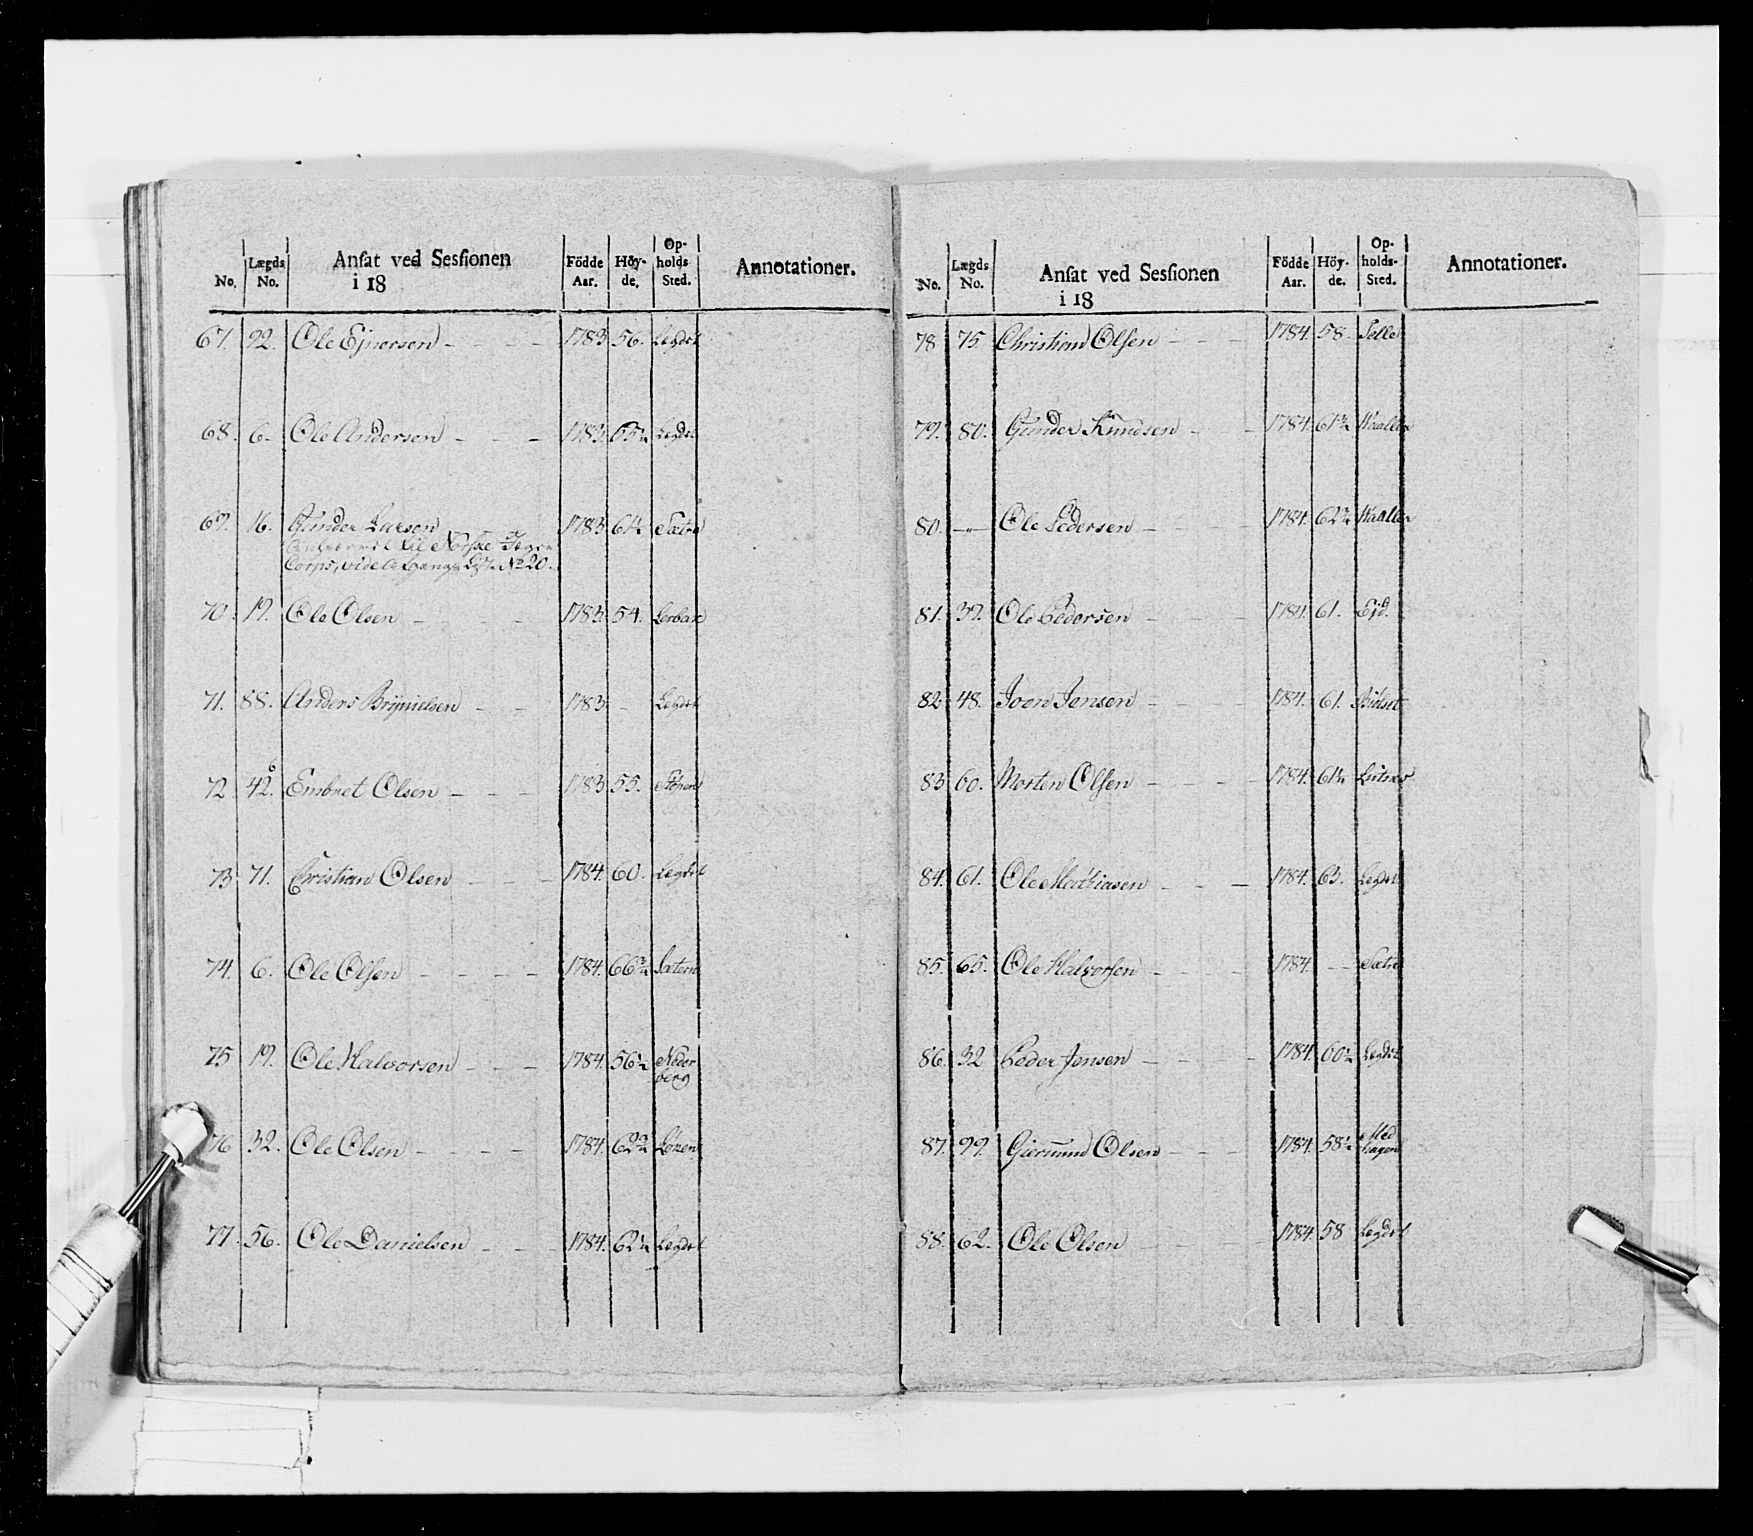 No. Lægds No. Ansat ved Sessionen i 18 Födde Aar. Höy-de. Op-holds Sted. Annotationer.
67. 92. Ole Ejnersen - - - - 1783 56. Legdet
68. 6. Ole Andersen - - - 1783 65½ Legdet
69. 16. Gunder Larsen 1783 61½ Sætre
til Norske Jeger
Corps, vide Afgangs List No 20.
70. 19. Ole Olsen - - - 1783 54. Lerbak
71. 88. Anders Brynielsen - - 1783 - Legdet
72 42. 6 Embret Olsen - - - 1783 55.
73 71. Christian Olsen - - - 1784. 60. Legdet
74. 6. Ole Olsen - - - - 1784. 66½ Sætern
75 19. Ole Halvorsen - - - 1784. 56½ Neder
berg
76 32. Ole Olsen - - - - 1784. 62¾ Löken
77. 56. Ole Danielsen - - - 1784. 62½ Legdet
No. Lægds No. Ansat ved Sessionen i 18 Födde Aar. Höy-de. Op-holds-Sted. Annotationer.
78 75. Christian Olsen - - - 1784. 58. Selle
79. 80. Gunder Knudsen - - 1784. 61¾ Waaller
80. -"- Ole Pedersen - - 1784. 62¾ Waaller
81. 39. Ole Pedersen - - - 1784. 61. Ejd.
82 48. Joen Jensen - - - 1784. 61.
83 60. Morten Olsen - - - - 1784. 61½
84. 61. Ole Mathiasen - - - 1784. 63. Legdet
85. 65. Ole Halvorsen - - - 1784. - - Sætre
86. 32 Peder Jensen - - - - 1784. 60½ Legdet
87. 99. Giermund Olsen - - - 1784. 58½ Med
hagen
88. 62. Ole Olsen - - - 1784. 58 Legdet